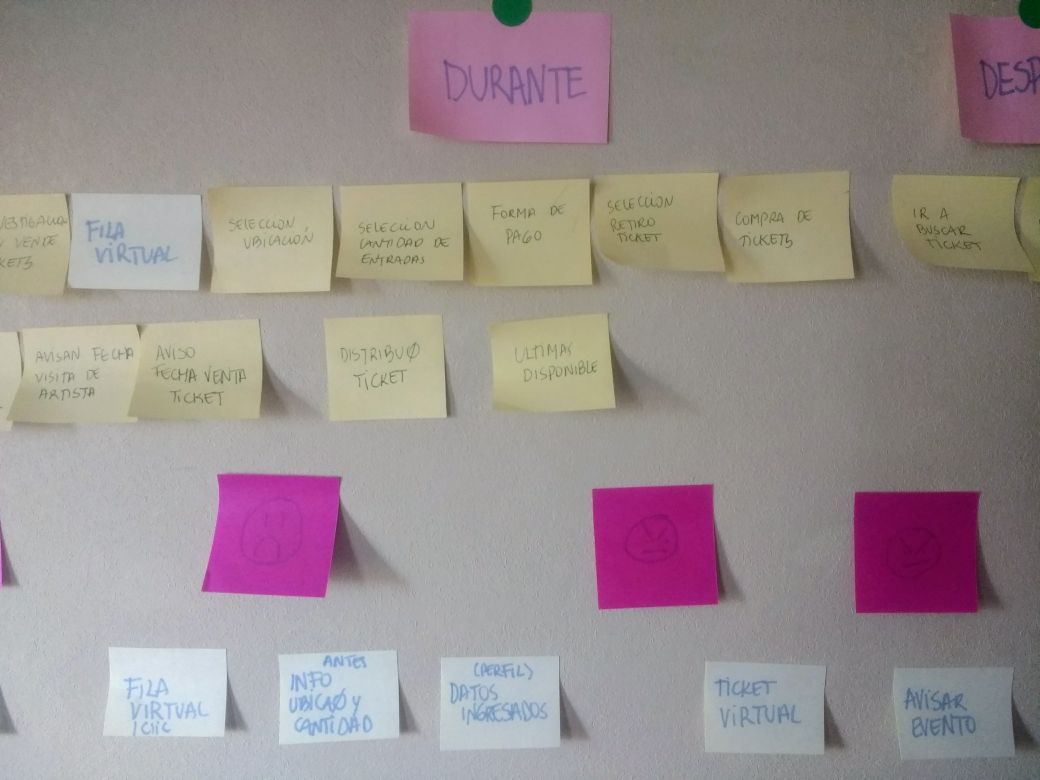 DURANTE
DESP
Y VENDE
FILA
VIRTUAL
SELECCION
UBICACIÓN
SELECCIÓN
CANTIDAD DE
ENTRADAS
FORMA DE
PAGO
SELECCION
RETIRO
TICKET
COMPRA DE
TICKETS
IR A
BUSCAR
TICKET
AVISAN FECHA
VISITA DE
ARTISTA
AVISO
FECHA VENTA
TICKET
TICKET
ULTIMAS
DISPONIBLE
FILA
VIRTUAL
1 CLIC
ANTES
INFO
Y
CANTIDAD
(PERFIL)
DATOS
INGRESADOS
TICKET
VIRTUAL
AVISAR
EVENTO